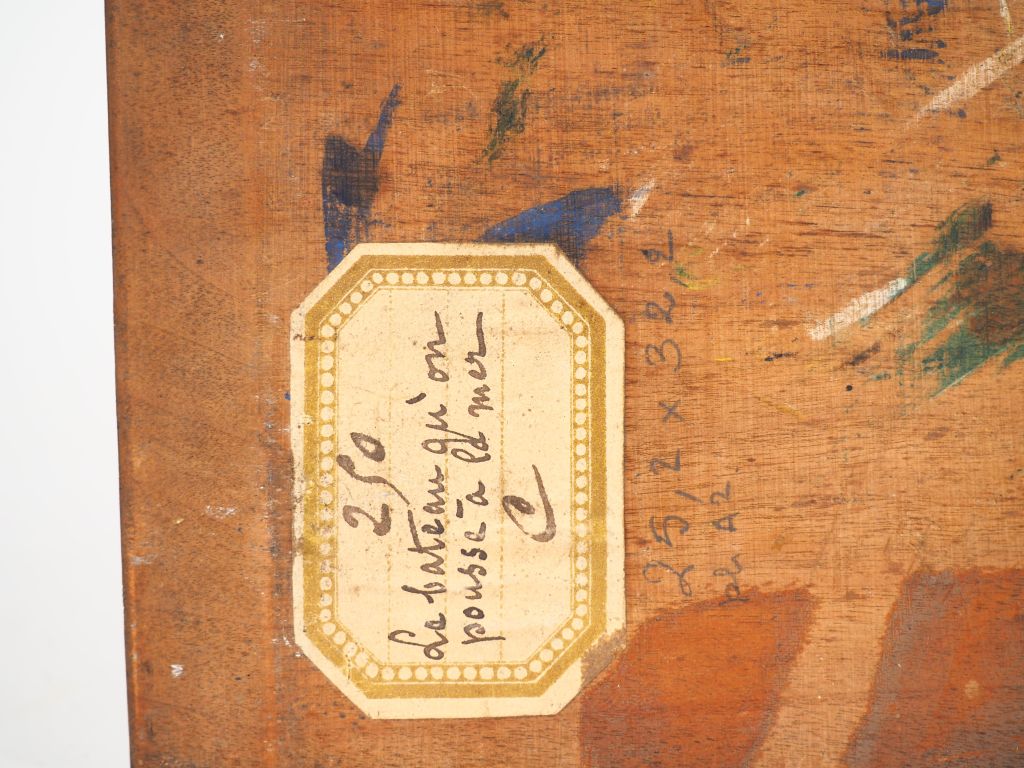 250
Le bateau qu'on
pousse à la mer
C
25,2 x 32,2
A2